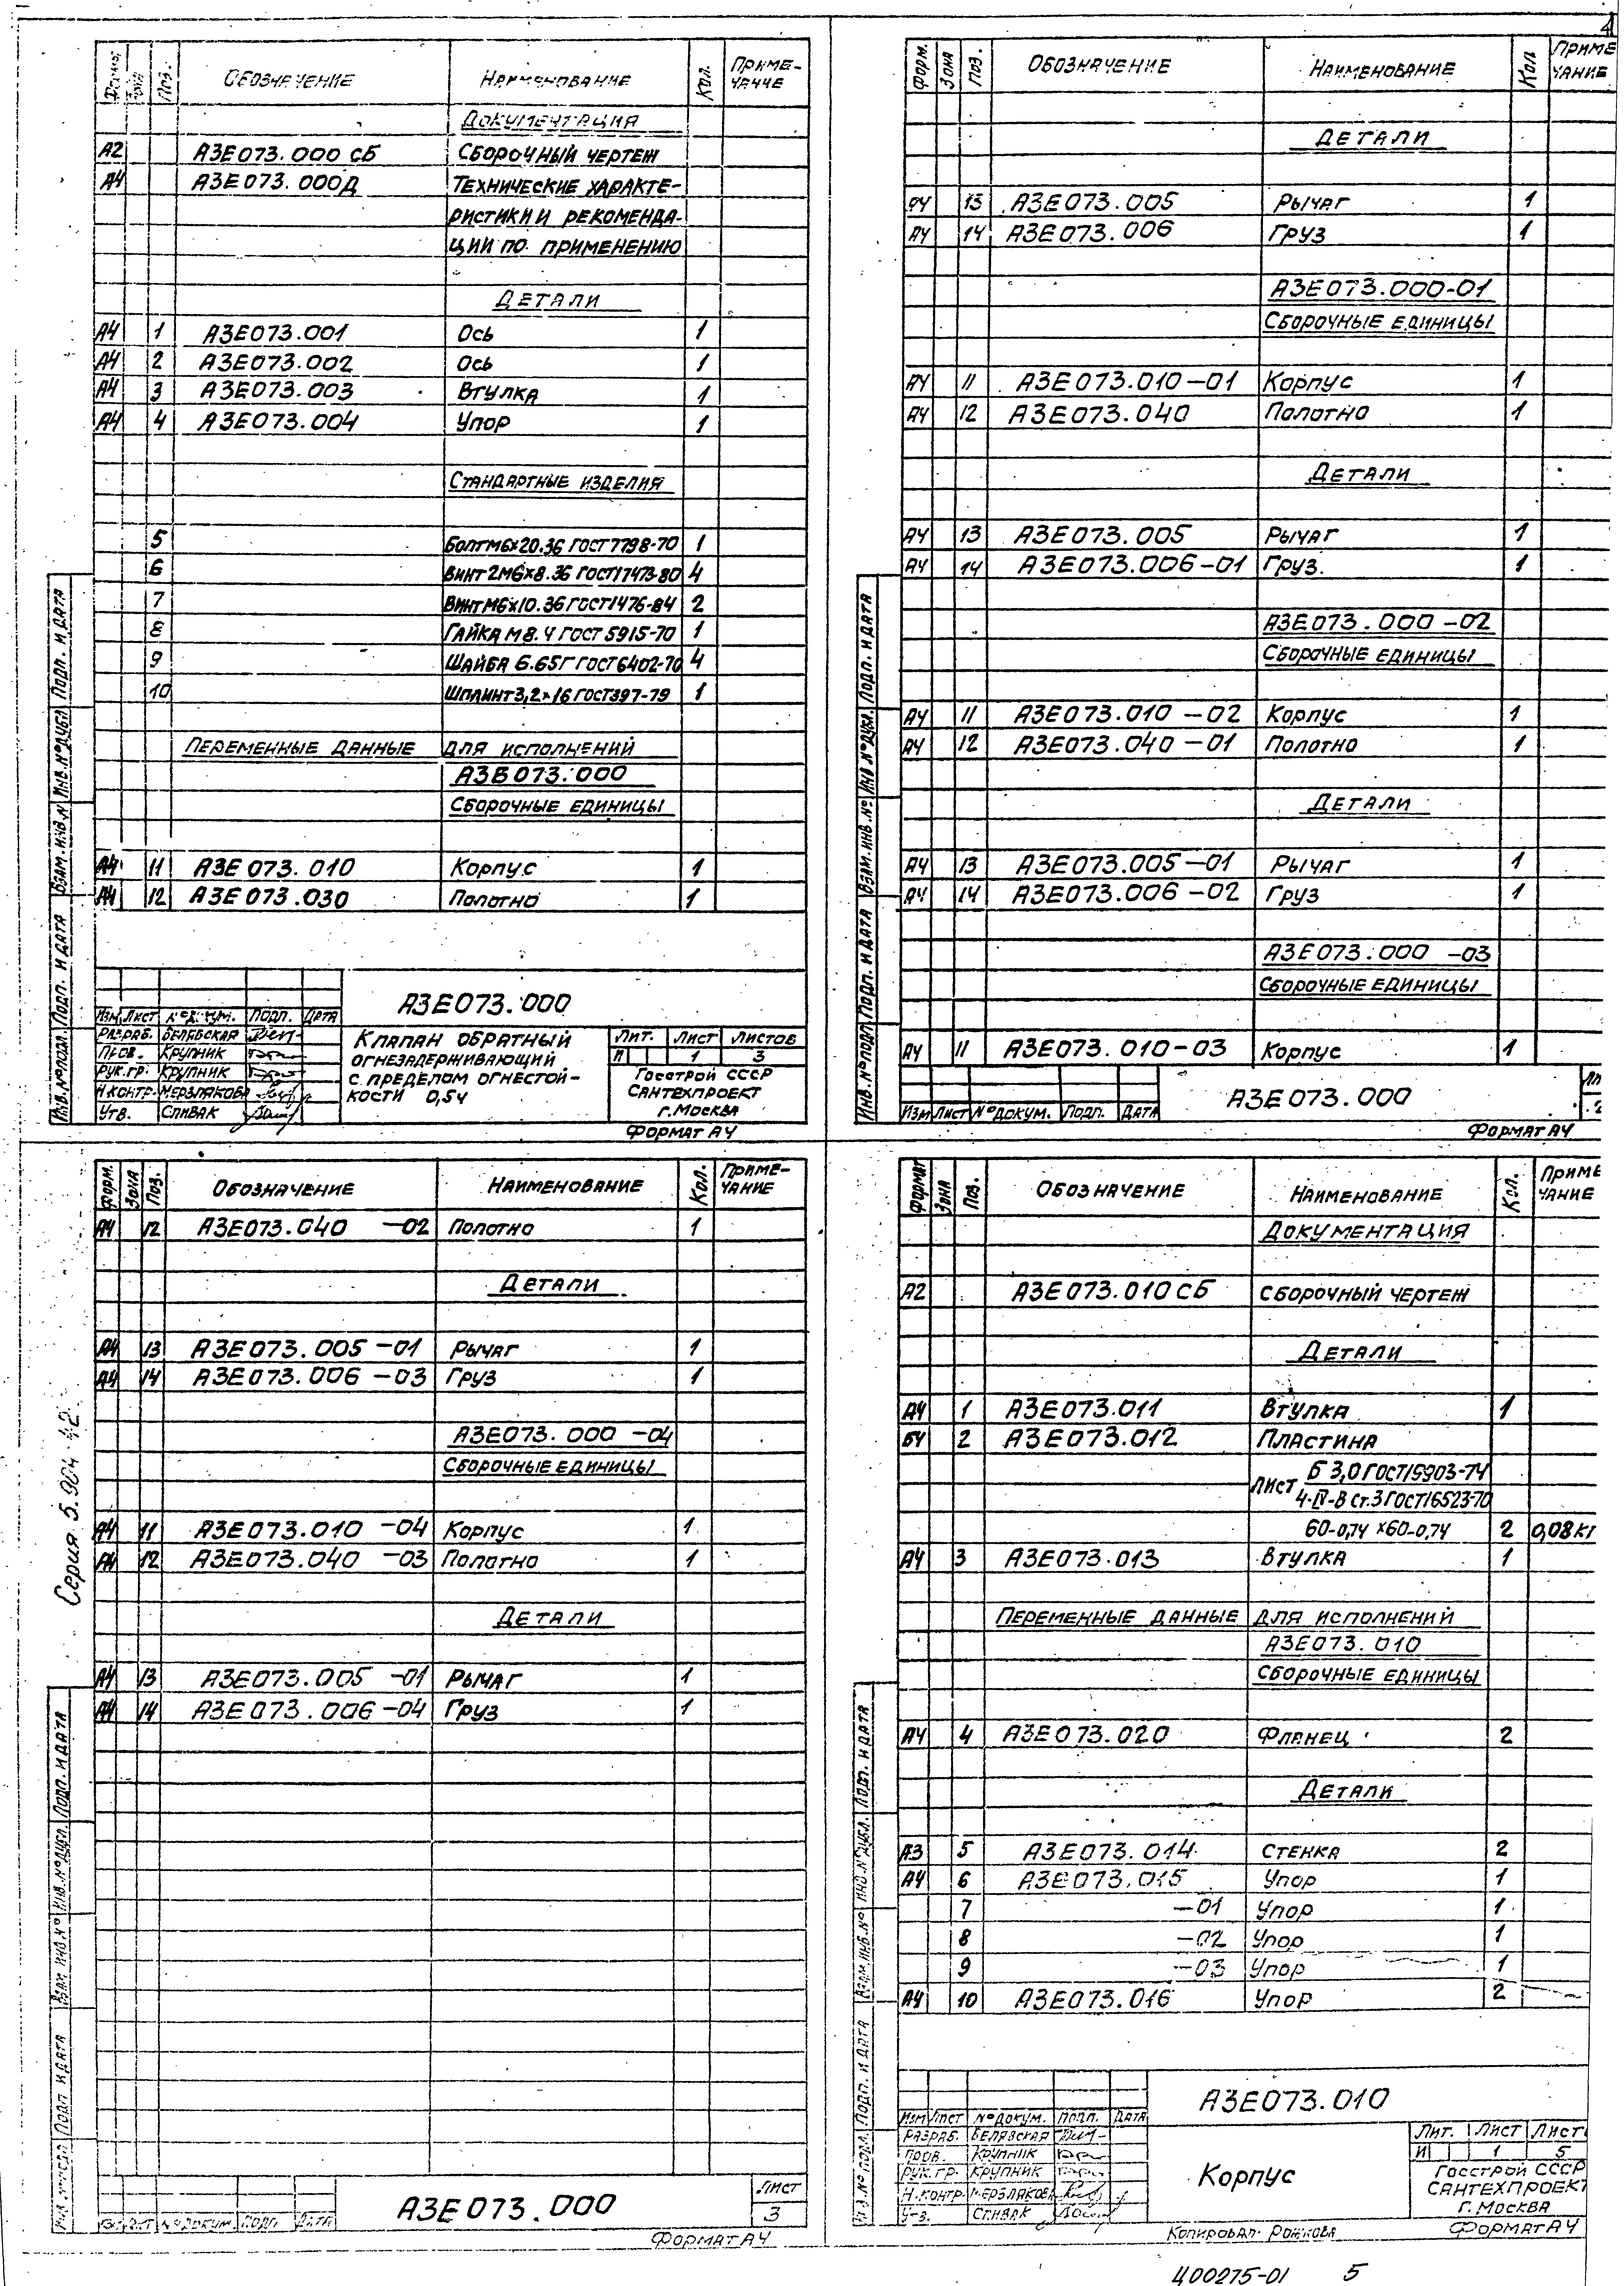 4
Форм. Зона Поз. Обозначение Наименование Кол. Приме-
чание
Документация
А2 А3Е073.000 СБ Сборочный чертеж
А4 А3Е073.000Д Технические характе-
ристики и рекоменда-
ции по применению
Детали
А4 1 А3Е073.001 Ось 1
А4 2 А3Е073.002 Ось 1
А4 3 А3Е073.003 Втулка 1
А4 4 А3Е073.004 Упор 1
Стандартные изделия
5 Болт М6х20.36 ГОСТ 7798-70 1
6 Винт 2М6х8.36 ГОСТ 17473-80 4
7 Винт М6х10.36 ГОСТ 1476-84 2
8 Гайка М8.4 ГОСТ 5915-70 1
9 Шайба 6.65Г ГОСТ 6402-70 4
10 Шплинт 3,2х16 ГОСТ 397-79 1
Переменные данные для исполнений
А3В073.000
Сборочные единицы
А4 11 А3Е073.010 Корпус 1
А4 12 А3Е073.030 Полотно 1
Инв.№подл. Подп. и дата Взам.инв.№ Инв.№дубл. Подп. и дата
А3Е073.000
Изм Лист №докум. Подп. Дата
Разраб. Белявская
Пров. Крупник
Рук.гр. Крупник
Н.контр. Мерзлякова
Утв. Спивак
Клапан обратный
огнезадерживающий
с пределом огнестой-
кости 0,5ч
Лит. Лист Листов
И 1 3
Госстрой СССР
Сантехпроект
г.Москва
Формат А4
Форм. Зона Поз. Обозначение Наименование Кол Приме
чание
Детали
А4 13 А3Е073.005 Рычаг 1
А4 14 А3Е073.006 Груз 1
А3Е073.000-01
Сборочные единицы
А4 11 А3Е073.010-01 Корпус 1
А4 12 А3Е073.040 Полотно 1
Детали
А4 13 А3Е073.005 Рычаг 1
А4 14 А3Е073.006-01 Груз. 1
А3Е073.000-02
Сборочные единицы
А4 11 А3Е073.010-02 Корпус 1
А4 12 А3Е073.040-01 Полотно 1
Детали
А4 13 А3Е073.005-01 Рычаг 1
А4 14 А3Е073.006-02 Груз 1
А3Е073.000-03
Сборочные единицы
А4 11 А3Е073.010-03 Корпус 1
Инв.№подл. Подп. и дата Взам.инв.№ Инв №дубл. Подп. и дата
Изм Лист №докум. Подп. Дата
А3Е073.000
Формат А4
Форм. Зона Поз. Обозначение Наименование Кол. Приме-
чание
А4 12 А3Е073.040 -02 Полотно 1
Детали
А4 13 А3Е073.005-01 Рычаг 1
А4 14 А3Е073.006-03 Груз 1
А3Е073.000-04
Сборочные единицы
А4 11 А3Е073.010-04 Корпус 1
А4 12 А3Е073.040-03 Полотно 1
Детали
А4 13 А3Е073.005 -01 Рычаг 1
А4 14 А3Е073.006-04 Груз 1
Серия 5.904-42
Подп и дата Взам инв.№ Инв.№дубл. Подп. и дата
№докум. Подп Дата
А3Е073.000
Лист
3
Формат А4
Формат Зона Поз. Обозначение Наименование Кол. Приме
чание
Документация
А2 А3Е073.010 СБ Сборочный чертеж
Детали
А4 1 А3Е073.011 Втулка 1
БЧ 2 А3Е073.012 Пластина
Лист Б 3,0 ГОСТ 19903-74
4-IV-В Ст.3 ГОСТ 16523-70
60-0,74 х60-0,74 2 0,08кг
А4 3 А3Е073.013 Втулка 1
Переменные данные для исполнений
А3Е073.010
Сборочные единицы
А4 4 А3Е073.020 Фланец 2
Детали
А3 5 А3Е073.014 Стенка 2
А4 6 А3Е073.015 Упор 1
7 -01 Упор 1
8 -02 Упор 1
9 -03 Упор 1
А4 10 А3Е073.016 Упор 2
Инв.№ подл. Подп. и дата Взам.инв.№ Инв.№дубл. Подп. и дата
А3Е073.010
Изм Лист №докум. Подп. Дата
Разраб. Белявская
Пров. Крупник
Рук.гр. Крупник
Н.контр. Мерзлякова
Утв. Спивак
Корпус
Лит. Лист Лист
И 1 5
Госстрой СССР
Сантехпроект
г. Москва
Копировал Рожкова Формат А4
Ц00275-01 5